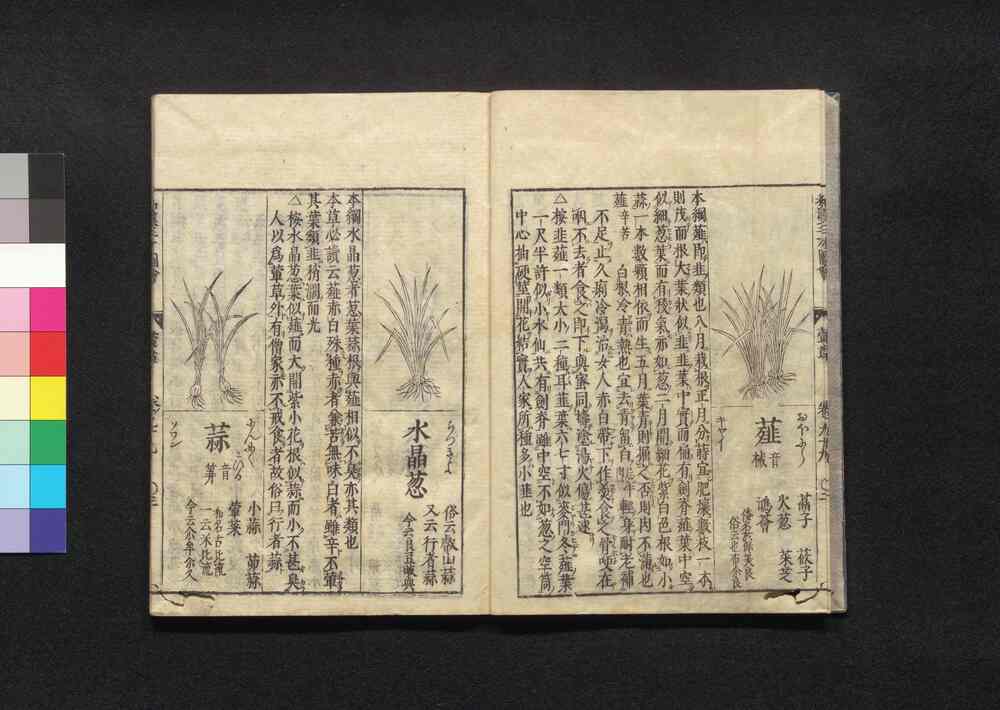 和漢三才圖會
葷草
卷ノ九十九
薤
音械
おほみら
キヤイ
藠子 莜子
火葱 菜芝
鴻薈
本綱薤即韭類也八月栽根正月分蒔宜肥壤數枝一本
則茂而根大葉狀似韭韭葉中實而扁有劍脊薤葉中空
似細葱葉而有稜氣亦如葱二月開細花紫白色根如小
蒜一本數顆相依而生五月葉青則掘之否則肉不滿也
薤辛苦 白根冷青熱也宜去青留白
輕身耐老補
不足止久痢冷瀉治女人赤白帶下作羹食之骨哽在
咽不去者食之即下與蜜同擣塗湯火傷甚速
△按韭薤一類大小二種耳韭葉六七寸似麥門冬薤葉
一尺半許似小水仙共有劍脊雖中空不如葱之空筒
中心抽硬莖開花結實人家所種多小韭也
水晶葱
らつきよ
俗云
山蒜
又云行者蒜
本綱水晶葱者葱葉蒜根與薤相似不臭亦其類也
本草必讀云薤赤白殊種赤者兼苦無味白者雖辛不葷
其葉類韭稍濶而光
△按水晶葱葉似薤而大開紫小花根似蒜而小不甚臭
人以爲葷草外有僧家亦不戒食者故俗曰行者蒜
蒜
音筭
こひる
ソワン
小蒜 茆蒜
葷菜
和名古比流
一云米比流